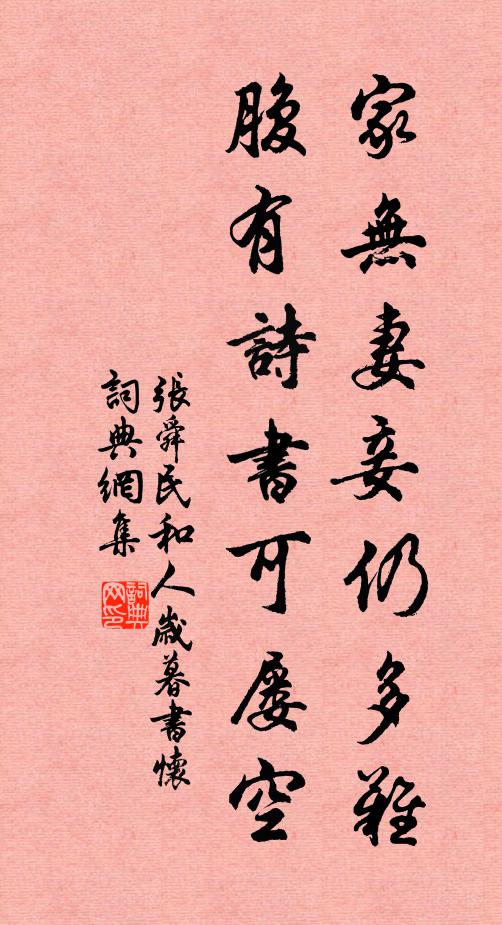 家無妻妾仍多難
腹有詩書可屢空
張舜民和人歲暮書懷
詞典網集
詞典网印